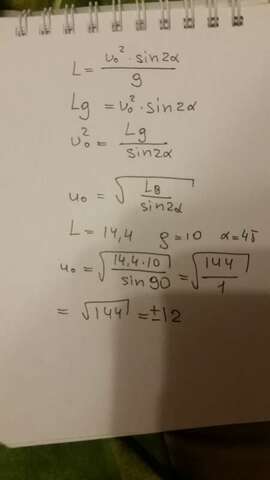 L = υ₀² · sin2α / g
Lg = υ₀² · sin2α
υ₀² = Lg / sin2α
u₀ = √(L8 / sin2α)
L = 14,4 g = 10 α = 45
u₀ = √(14,4 · 10 / sin90) = √(144 / 1)
= √144 = ±12